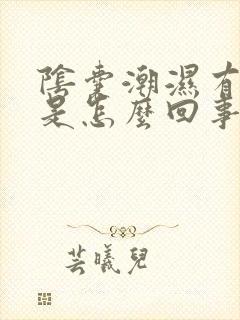 陰囊潮濕有
是怎麼回事
芸曦兒